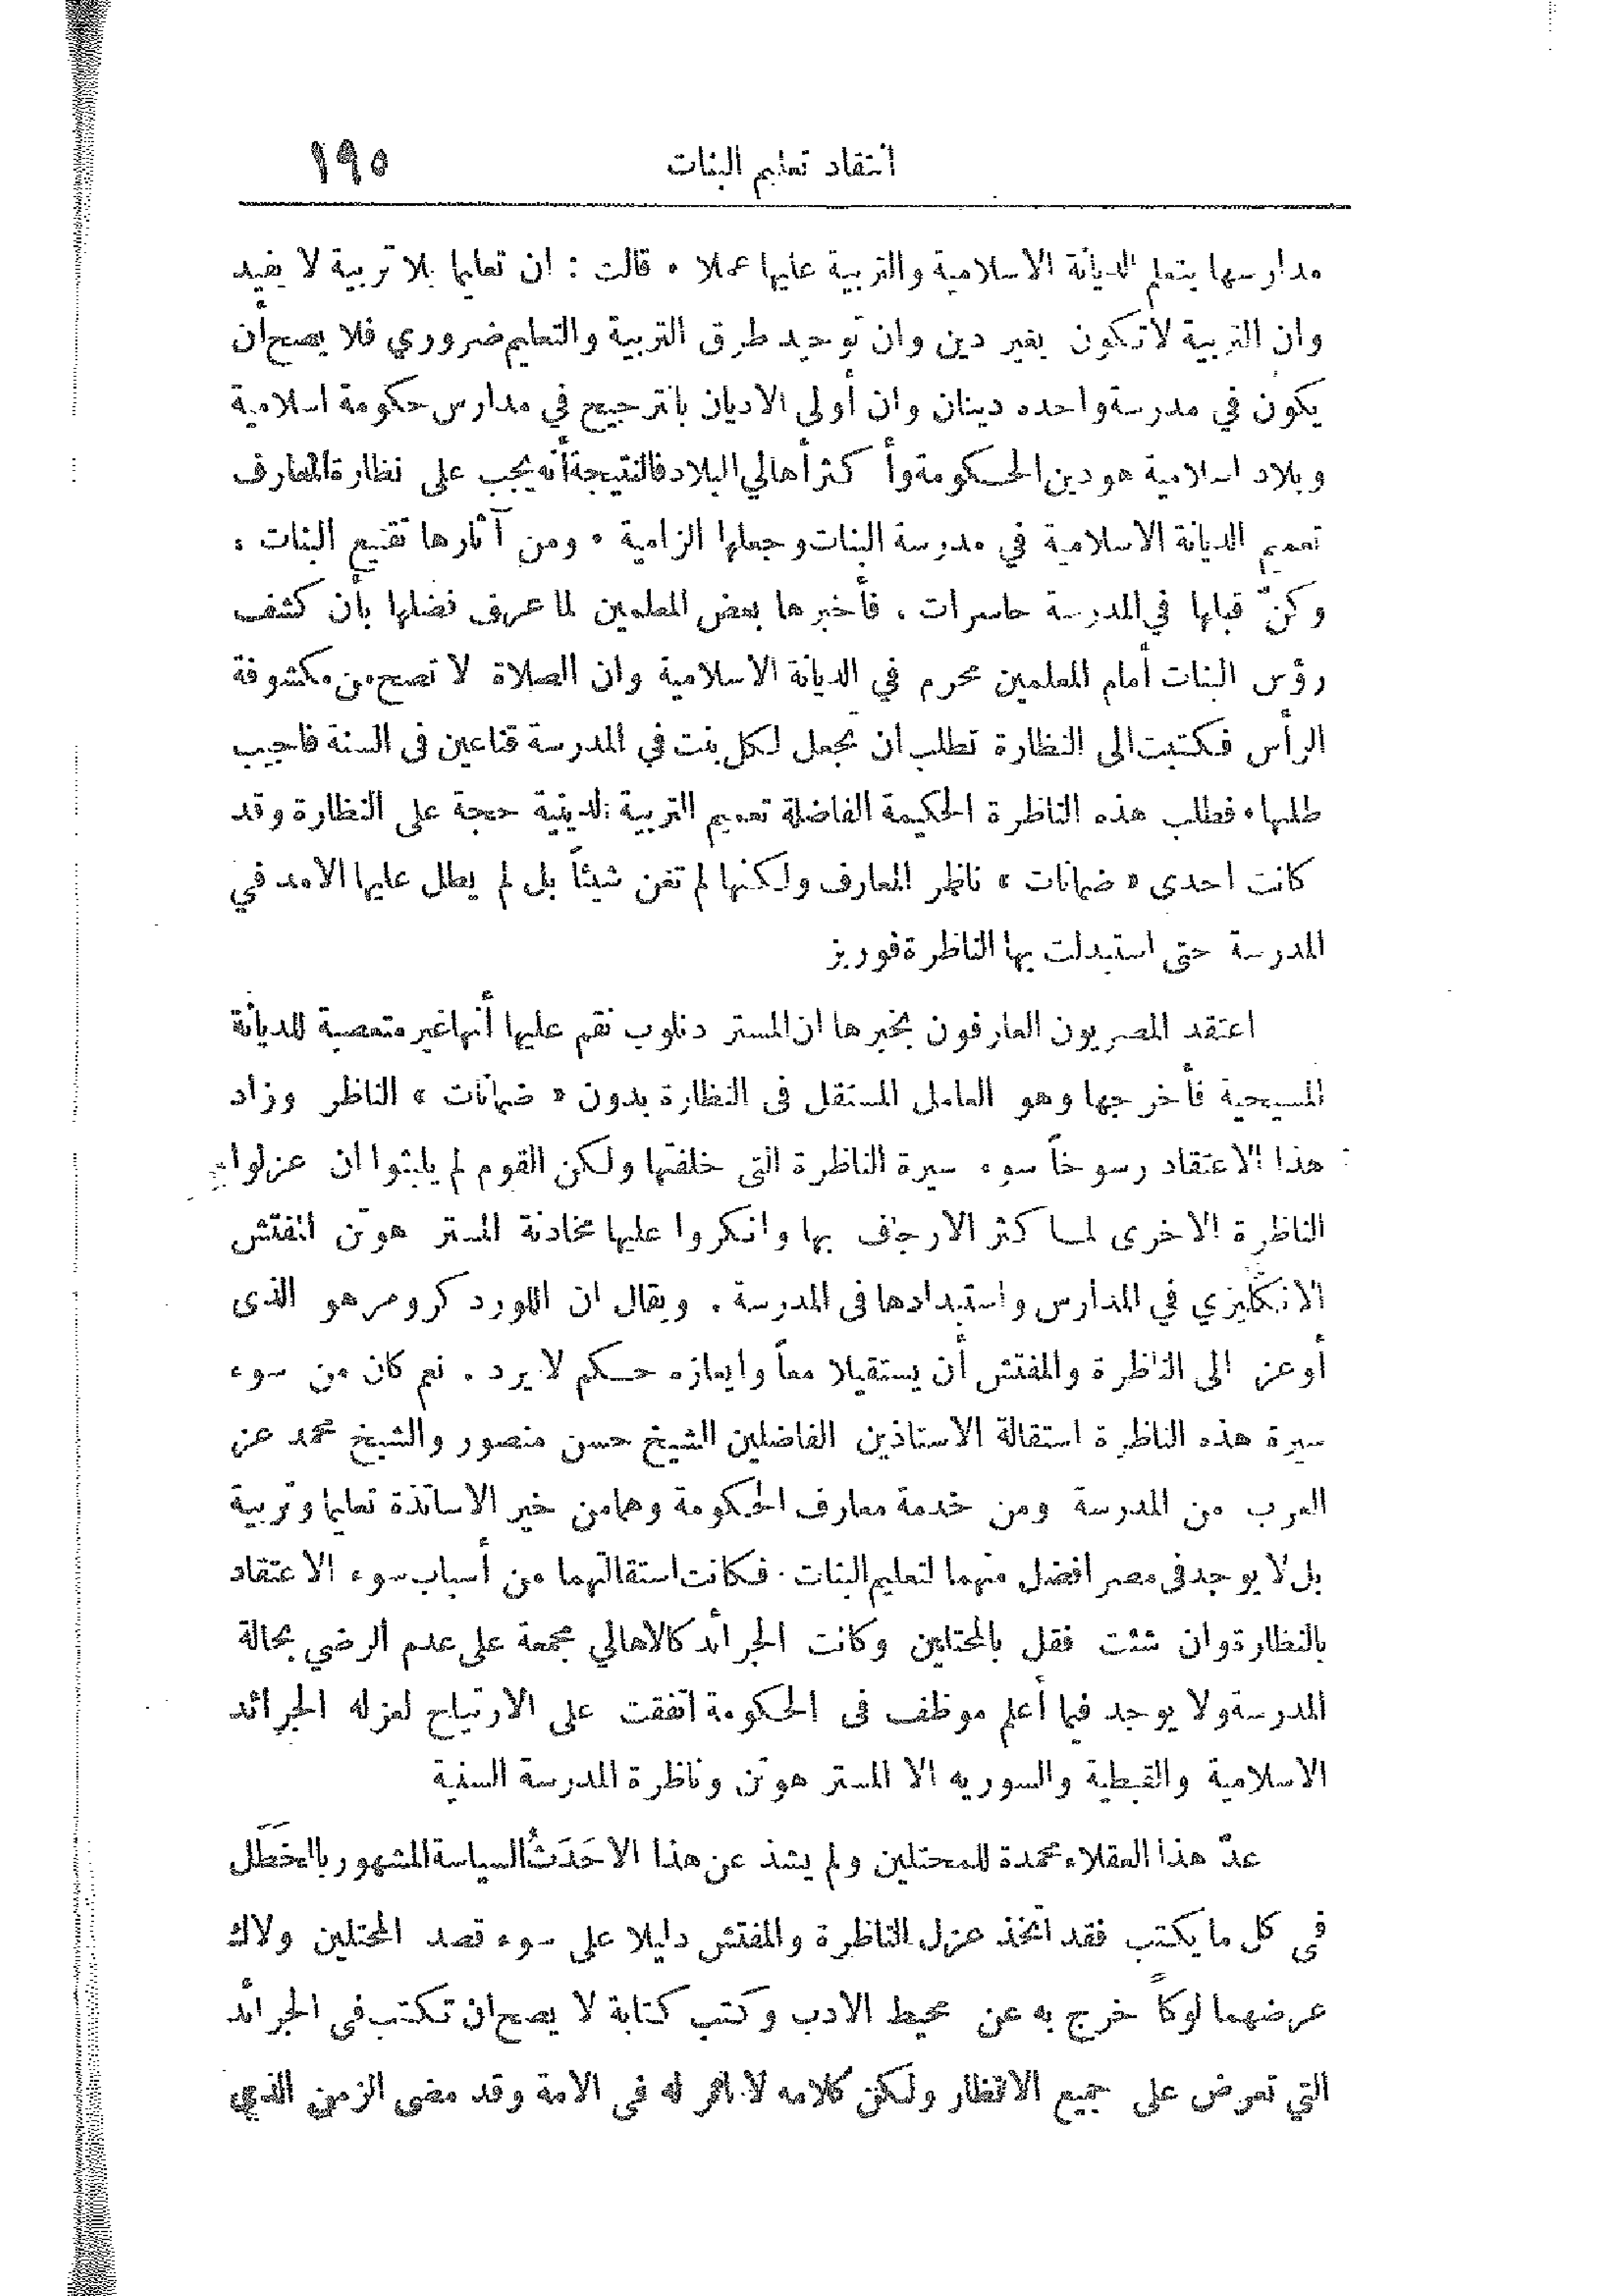 انتقاد تعليم البنات ١٩٥
مدارسها بتعلم الديانة الاسلامية والتربية عليها عملا ٠ قالت : ان تعليما بلا تربية لا يفيد
وان التربية لا تكون بغير دين وان توحيد طرق التربية والتعليم ضروري فلا يصح أن
يكون في مدرسة واحده دينان وان أولى الاديان بالترجيح في مدارس حكومة اسلامية
وبلاد اسلامية هو دين الحكومة وأكثر أهالي البلاد فالنتيجة أنه يجب على نظارة المعارف
تعميم الديانة الاسلامية في مدرسة البنات وجعلها الزامية ٠ ومن آثارها تقنيع البنات ،
وكنّ قبلها في المدرسة حاسرات ، فأخبرها بعض المعلمين لما عرف فضلها بأن كشف
رؤس البنات أمام المعلمين محرم في الديانة الاسلامية وان الصلاة لا تصح من مكشوفة
الرأس فكتبت الى النظارة تطلب ان تجعل لكل بنت في المدرسة قناعين فى السنة فاجيب
طلبها ٠ فطلب هذه الناظرة الحكيمة الفاضلة تعميم التربية الدينية حجة على النظارة وقد
كانت احدى « ضمانات » ناظر المعارف ولكنها لم تغن شيئاً بل لم يطل عليها الامد في
المدرسة حتى استبدلت بها الناظرة فوربز
اعتقد المصريون العارفون بخبرها ان المستر دنلوب نقم عليها أنها غير متعصبة للديانة
المسيحية فأخرجها وهو العامل المستقل فى النظارة بدون « ضمانات » الناظر وزاد
هذا الاعتقاد رسوخاً سوء سيرة الناظرة التى خلفتها ولكن القوم لم يلبثوا ان عزلوا
الناظرة الاخرى لما كثر الارجاف بها وانكروا عليها مخادنة المستر هوتن المفتش
الانكليزي في المدارس واستبدادها فى المدرسة . ويقال ان اللورد كرومر هو الذى
أوعز الى الناظرة والمفتش أن يستقيلا معاً وايعازه حكم لا يرد . نعم كان من سوء
سيرة هذه الناظرة استقالة الاستاذين الفاضلين الشيخ حسن منصور والشيخ محمد عز
العرب من المدرسة ومن خدمة معارف الحكومة وهما من خير الاساتذة تعليما وتربية
بل لا يوجد فى مصر افضل منهما لتعليم البنات . فكانت استقالتهما من أسباب سوء الاعتقاد
بالنظارة وان شئت فقل بالمحتلين وكانت الجرائد كالاهالي مجمعة على عدم الرضي بحالة
المدرسة ولا يوجد فيما أعلم موظف فى الحكومة اتفقت على الارتياح لعزله الجرائد
الاسلامية والقبطية والسوريه الا المستر هوتن وناظرة المدرسة السنية
عدّ هذا العقلاء محمدة للمحتلين ولم يشذ عن هذا الا حَدَثُ السياسة المشهور بالخَطَل
فى كل ما يكتب فقد اتخذ عزل الناظرة والمفتش دليلا على سوء قصد المحتلين ولاك
عرضهما لوكاً خرج به عن محيط الادب وكتب كتابة لا يصح ان تكتب فى الجرائد
التي تعرض على جميع الانظار ولكن كلامه لا اثر له فى الامة وقد مضى الزمن الذي